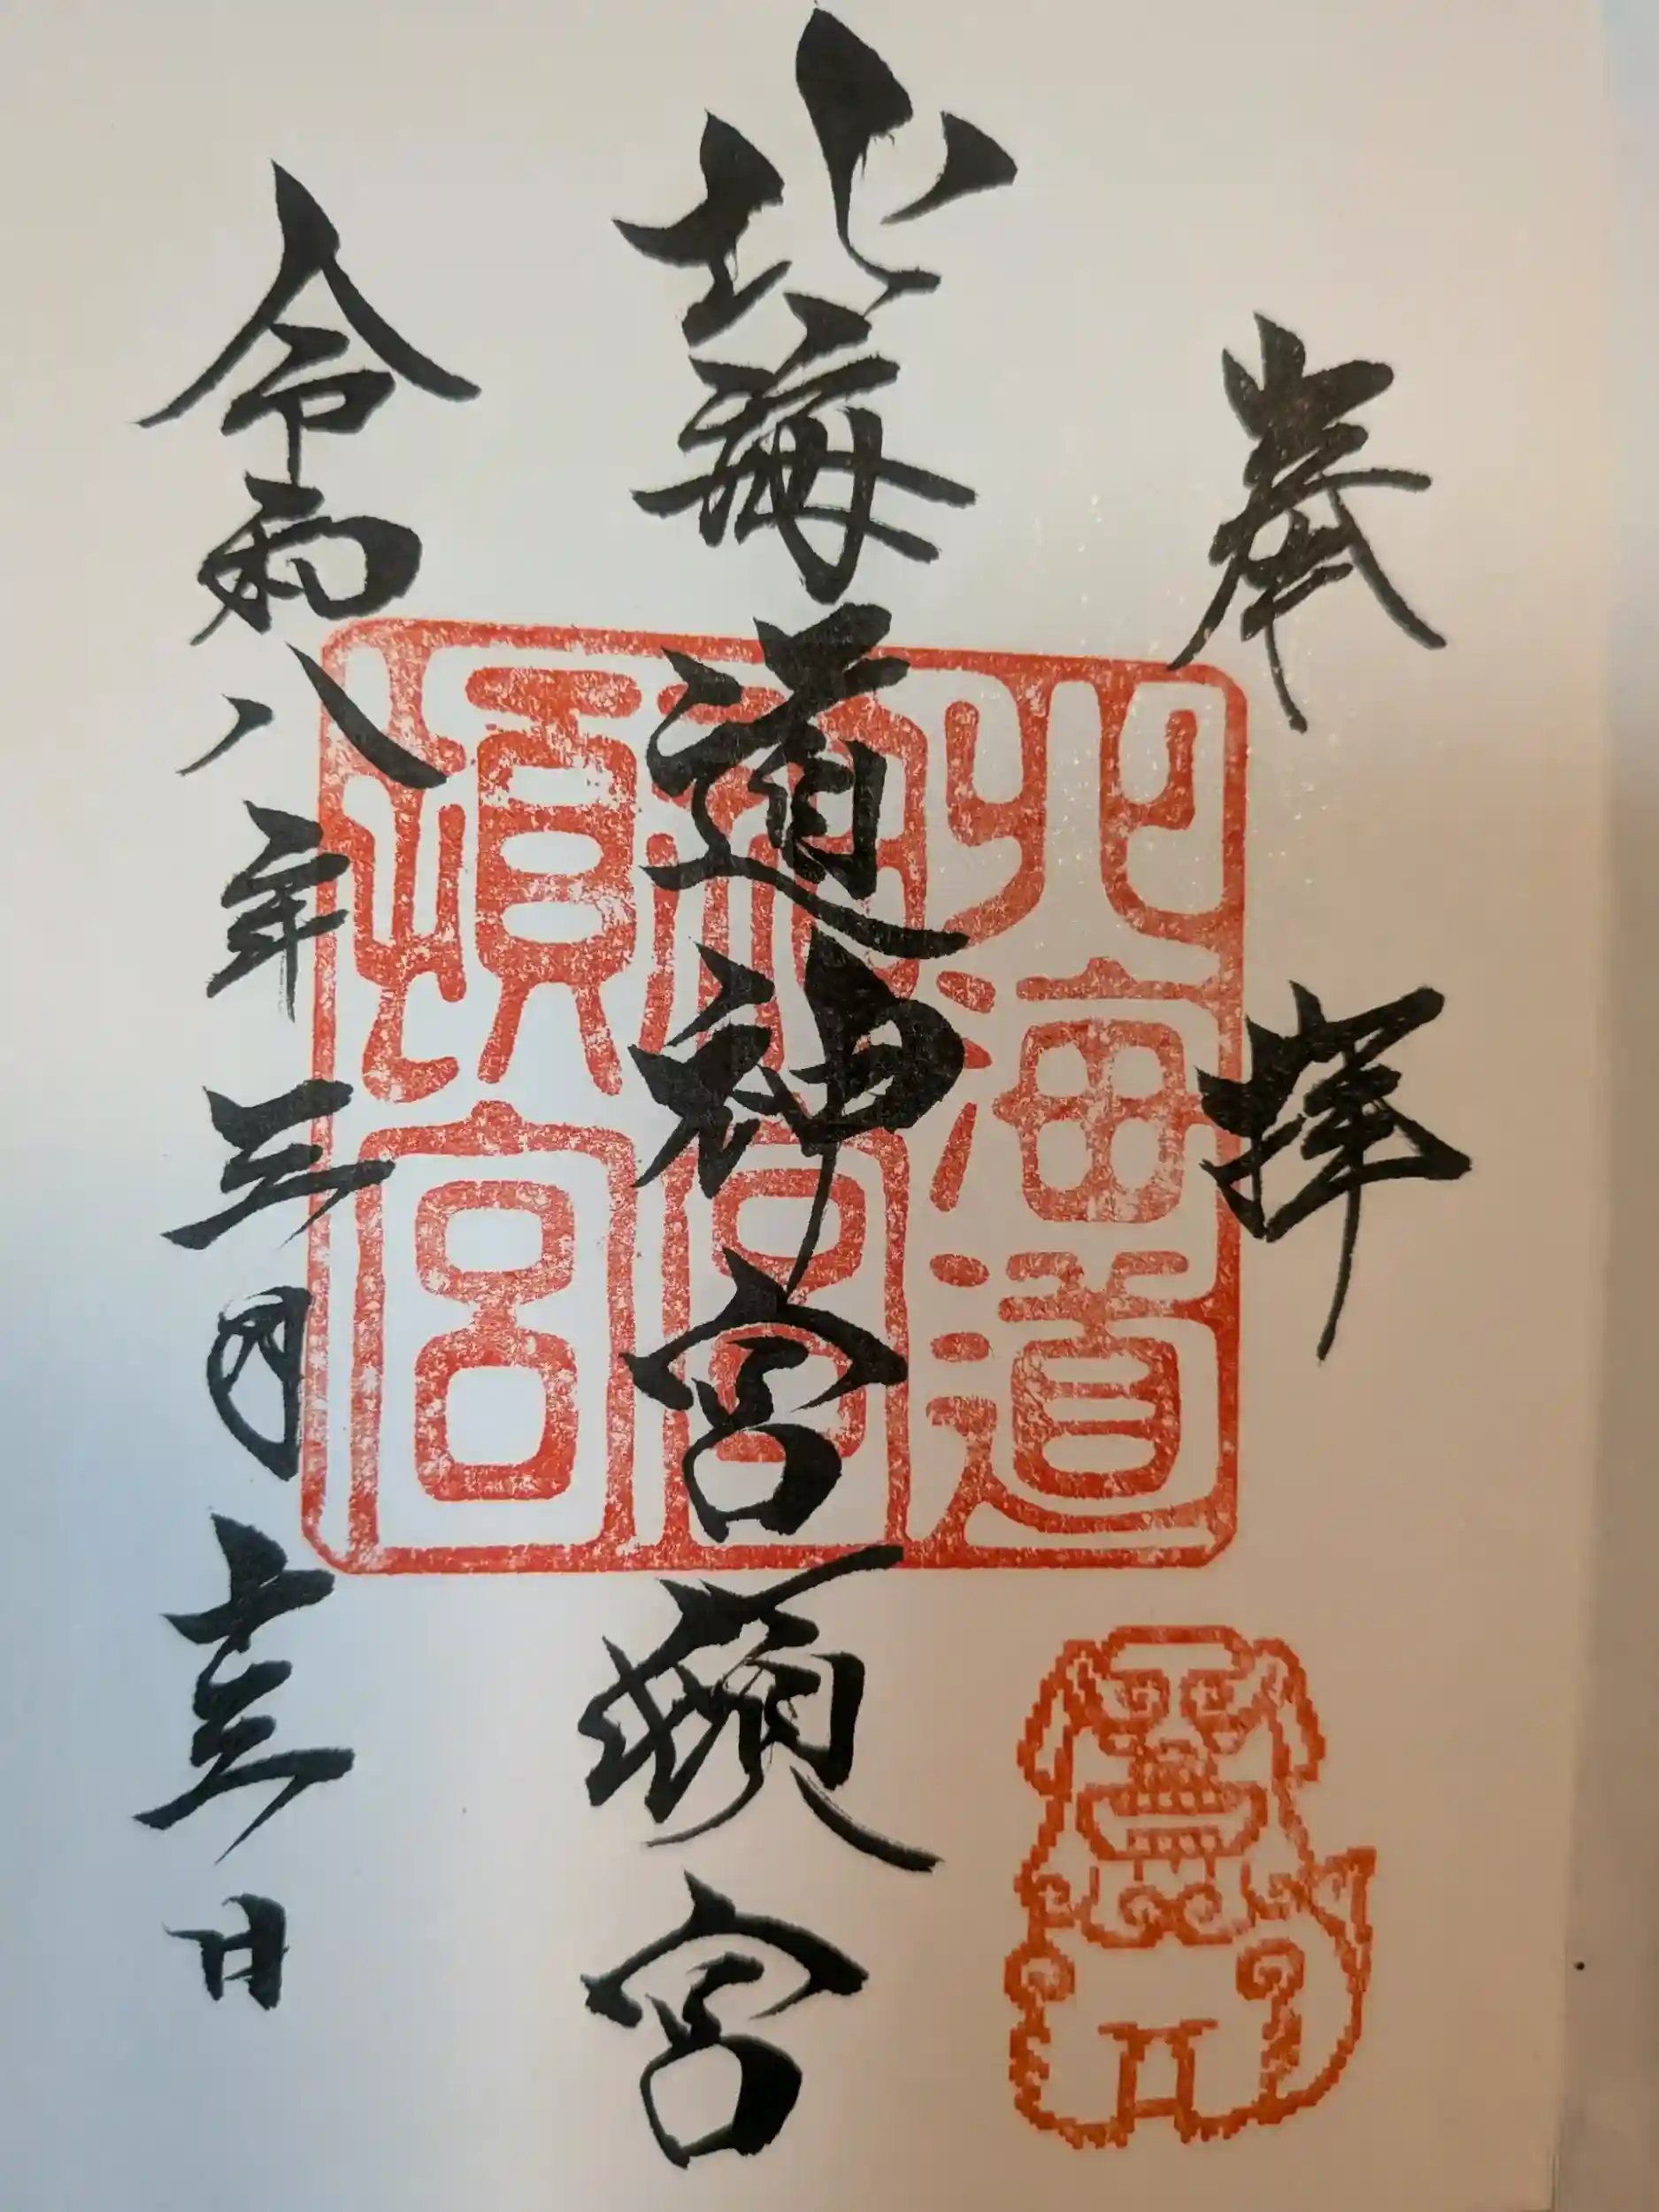 奉拝
北海道神宮頓宮
令和八年三月十三日
北海道
神宮
頓宮